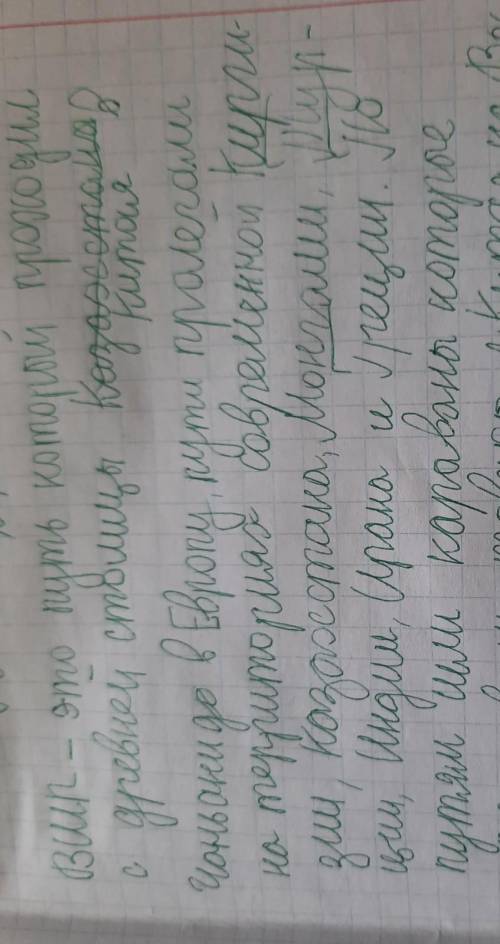 ВШП – это путь который проходил
с древней столицы Казахстана в Китая
Чаньани до в Европу, пути пролегали
на территориях современной Кирги-
зии, Казахстана, Монголии, Тур-
ции, Индии, Ирана и Греции. По
путям шли караваны которое